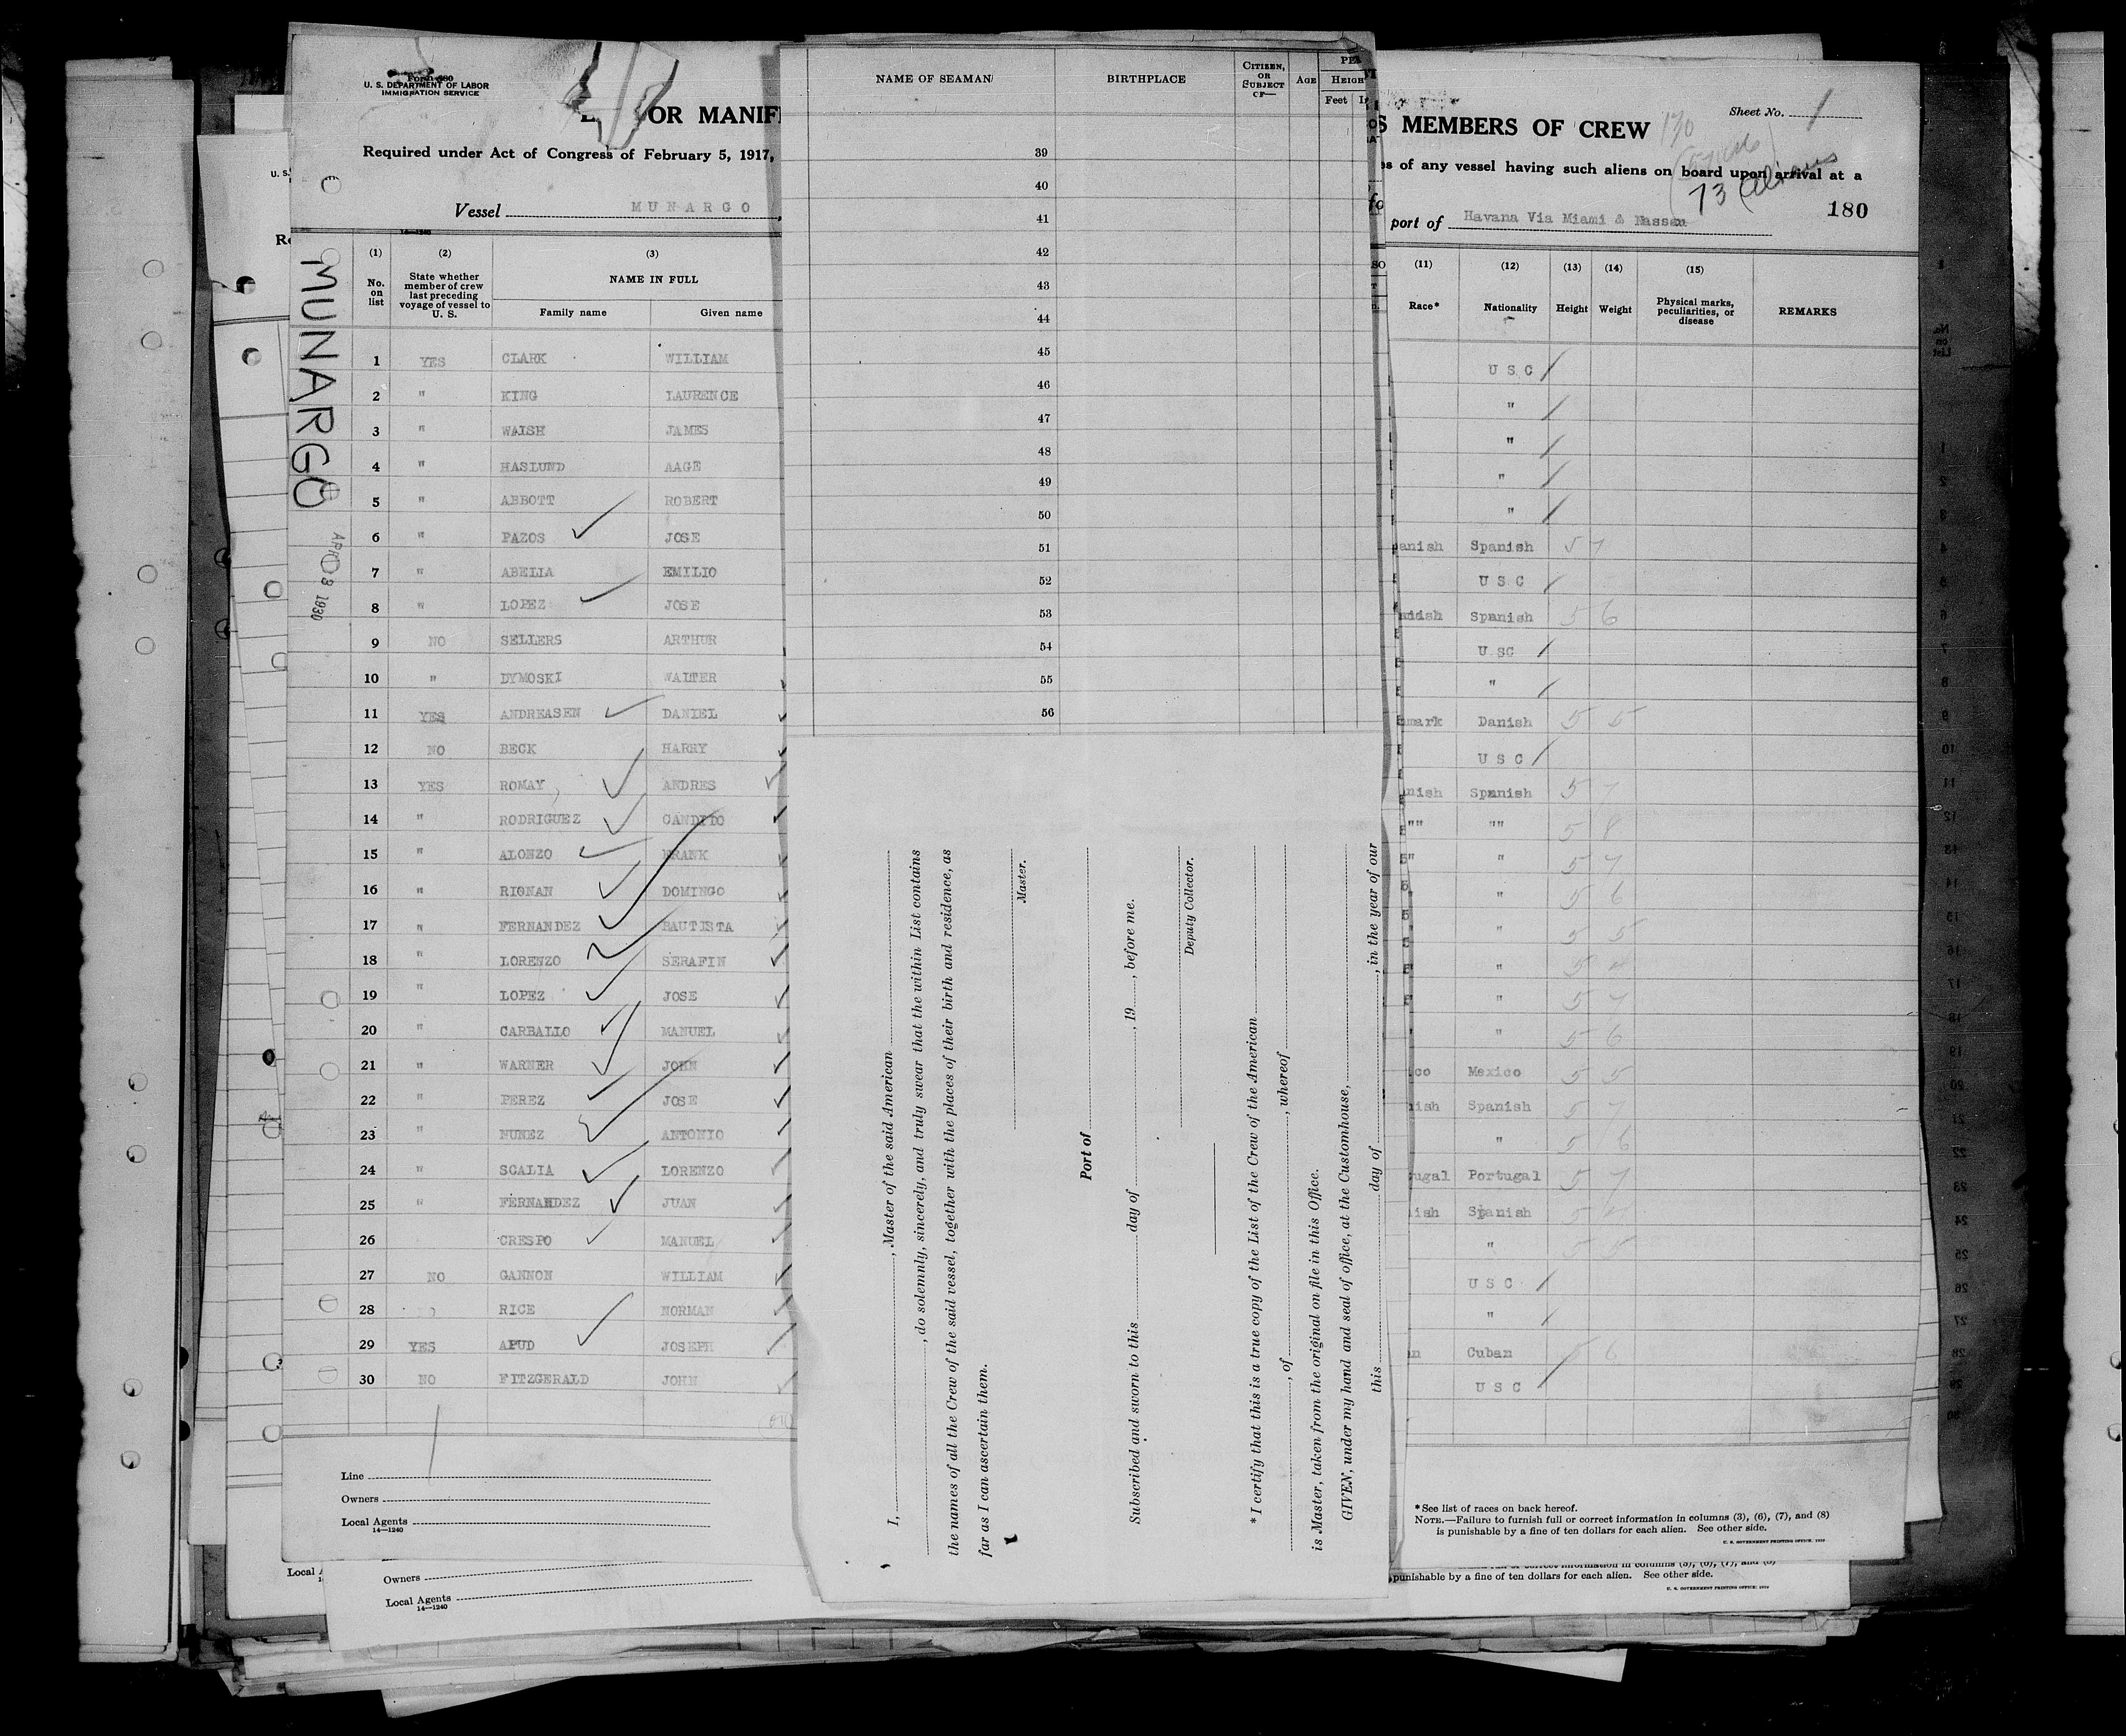 Form 680
U. S. DEPARTMENT OF LABOR
IMMIGRATION SERVICE
OR MANIF
Required under Act of Congress of February 5, 1917,
Vessel MUNARGO
14-1240
MUNARGO
APR 03 1930
(1) (2) (3)
No. on list
State whether member of crew last preceding voyage of vessel to U. S.
NAME IN FULL
Family name Given name
1 YES CLARK WILLIAM
2 " KING LAURENCE
3 " WALSH JAMES
4 " HASLUND AAGE
5 " ABBOTT ROBERT
6 " PAZOS JOSE
7 " ABELIA EMILIO
8 " LOPEZ JOSE
9 NO SELLERS ARTHUR
10 " DYMOSKI WALTER
11 YES ANDREASEN DANIEL
12 NO BECK HARRY
13 YES ROMAY, ANDRES
14 " RODRIGUEZ CANDIDO
15 " ALONZO FRANK
16 " RIONAN DOMINGO
17 " FERNANDEZ BAUTISTA
18 " LORENZO SERAFIN
19 " LOPEZ JOSE
20 " CARBALLO MANUEL
21 " WARNER JOHN
22 " PEREZ JOSE
23 " NUNEZ ANTONIO
24 " SCALIA LORENZO
25 " FERNANDEZ JUAN
26 CRESPO MANUEL
27 NO GANNON WILLIAM
28 RICE NORMAN
29 YES APUD JOSEPH
30 NO FITZGERALD JOHN
Line
Owners
Local Agents
14-1240
Owners
Local Agents
14-1240
NAME OF SEAMAN BIRTHPLACE CITIZEN, OR SUBJECT OF— AGE HEIGH
Feet
39
40
41
42
43
44
45
46
47
48
49
50
51
52
53
54
55
56
I, , Master of the said American
, do solemnly, sincerely, and truly swear that the within List contains
the names of all the Crew of the said vessel, together with the places of their birth and residence, as
far as I can ascertain them.
Master.
Port of
Subscribed and sworn to this day of , 19 , before me.
Deputy Collector.
* I certify that this is a true copy of the List of the Crew of the American
, of , whereof
is Master, taken from the original on file in this Office.
GIVEN, under my hand and seal of office, at the Customhouse,
this day of , in the year of our
S MEMBERS OF CREW
Sheet No. 1
es of any vessel having such aliens on board upon arrival at a
73 Aliens
180
port of Havana Via Miami & Nassau
(11) (12) (13) (14) (15)
Race* Nationality Height Weight Physical marks, peculiarities, or disease REMARKS
U S C
"
"
"
"
anish Spanish 5 7
U S C
Spanish 5 6
U SC
"
mark Danish 5 5
U S C
nish Spanish 5 7
"" "" 5 8
" " 5 7
" 5 6
" 5 5
"
" 5 7
" 5 6
co Mexico 5 5
ish Spanish 5 7
" 5 6
ugal Portugal 5 7
ish Spanish
" 5 5
U S C
"
n Cuban 6
U S C
*See list of races on back hereof.
NOTE.—Failure to furnish full or correct information in columns (3), (6), (7), and (8)
is punishable by a fine of ten dollars for each alien. See other side.
U. S. GOVERNMENT PRINTING OFFICE: 1929
punishable by a fine of ten dollars for each alien. See other side.